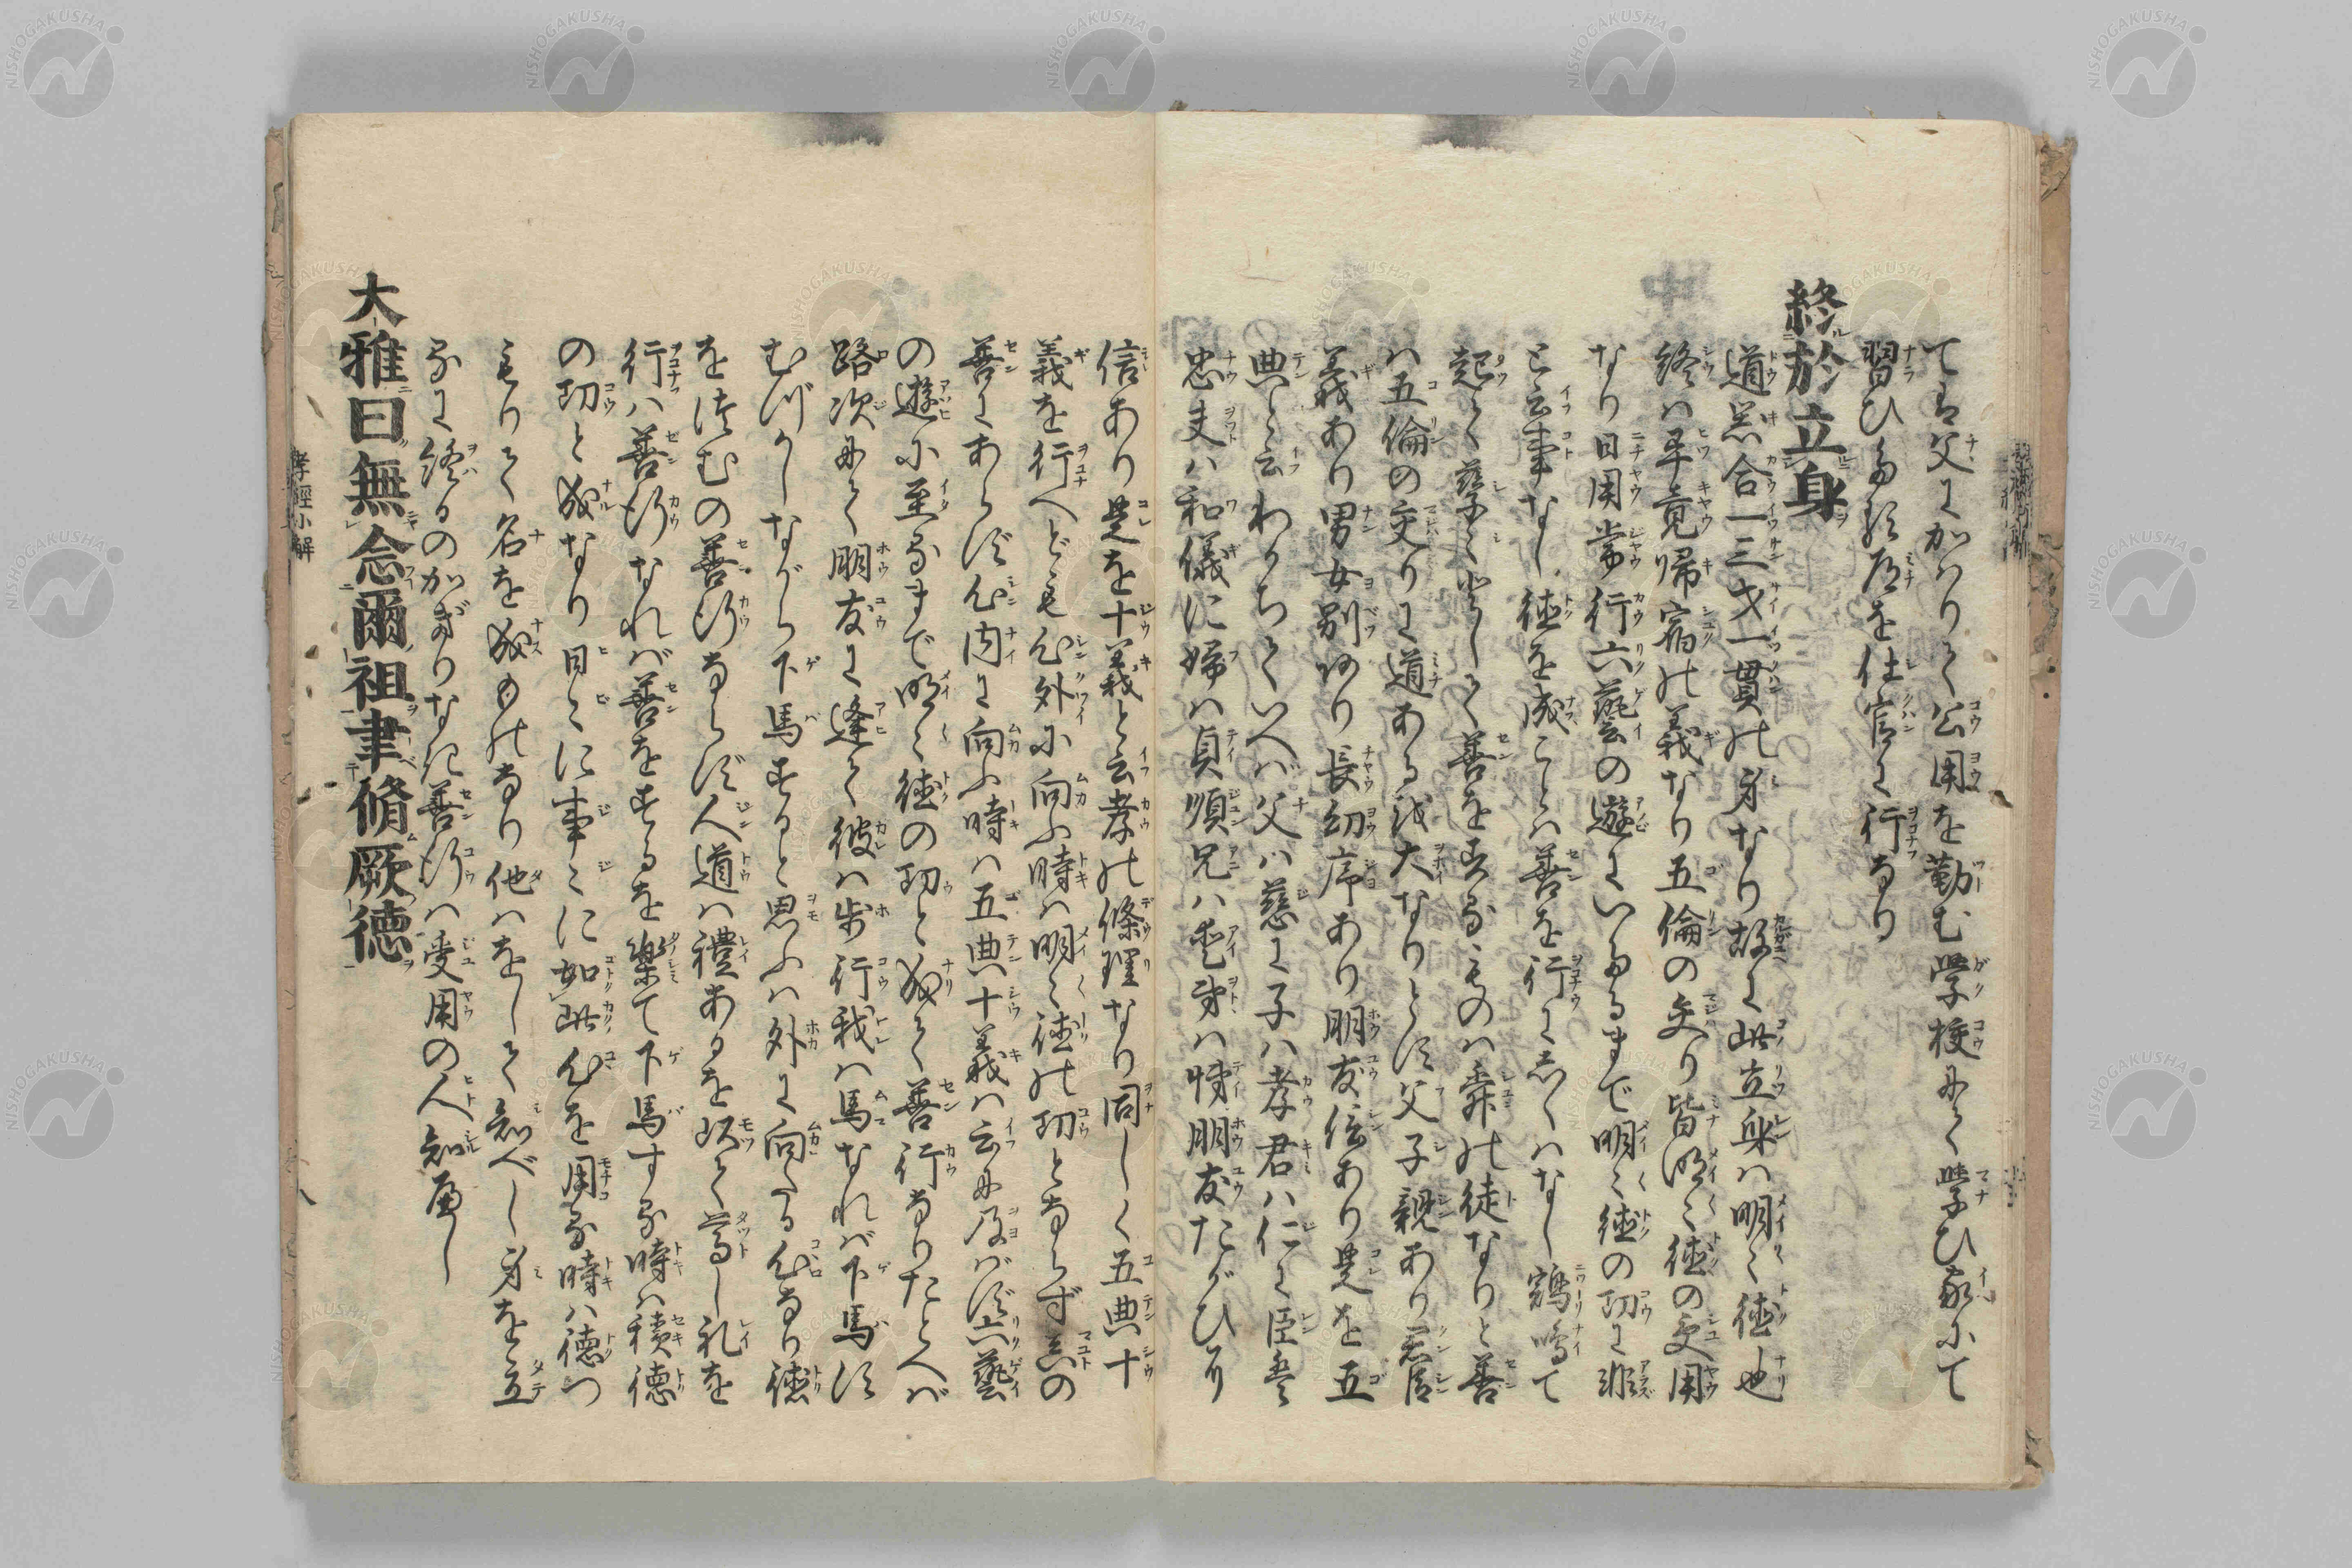 ては父にかハりて公用を勤む学校にて学ひ家にて
習ひたる道を仕官に行なり
終於立身
道器合一三才一貫の身なり故に此立身ハ明々徳也
終ハ畢竟帰宿の義なり五倫の交り皆明々徳の受用
なり日用常行六藝の遊にいたるまで明々徳の功に非
と云事なし徳を成ことハ善を行にしくハなし鶏鳴て
起て孳々として善をするものハ舜の徒なりと善
ハ五倫の交りに道あるを大なりとす父子親あり君臣
義あり男女別あり長幼序あり朋友信あり是を五
典と云わかちていへバ父ハ慈に子ハ孝君ハ仁に臣は
忠夫ハ和儀に婦ハ貞順兄ハ愛弟ハ悌朋友たがひに
信あり是を十義と云孝の條理なり同しく五典十
義を行へども心外に向ふ時ハ明々徳の功とならず真の
善にあらず心内に向ふ時ハ五典十義ハ云に及バず六藝
の遊に至るまで明々徳の功と成て善行なりたとへバ
路次にて朋友に逢て彼ハ歩行我ハ馬なれバ下馬す
むつかしながら下馬すると思ふハ外に向たる心なり徳
をつむの善行ならず人道ハ禮あるを以て尊し礼を
行ハ善行なれバ善をするを楽て下馬する時ハ積徳
の功と成なり日々に事々に如此心を用る時ハ徳つ
もりて名を成ものなり他ハをして知べし身を立
るに終るのかぎりなき善行ハ受用の人知べし
大雅曰無念爾祖聿脩厥徳
孝經小解